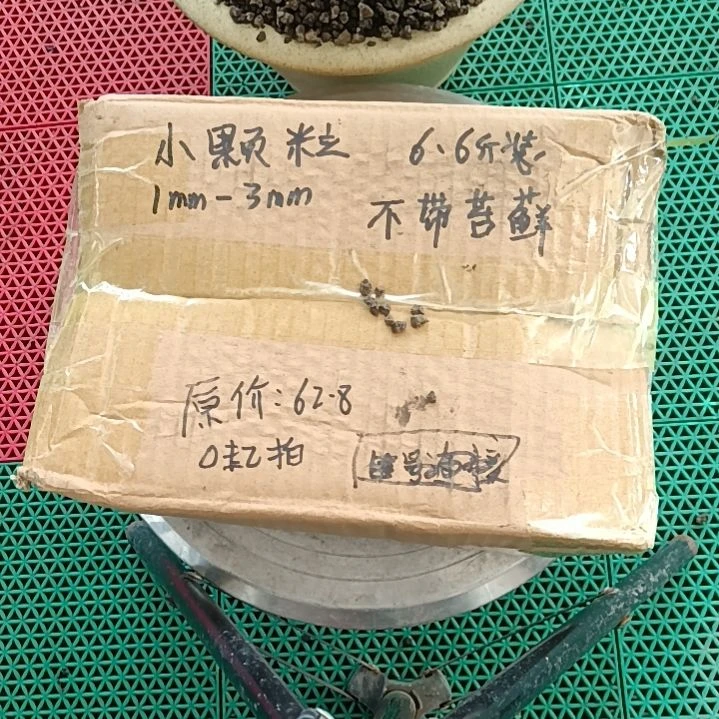 小颗粒 6.6斤装
1mm-3mm
不带苔藓
原价:62.8
0元拍